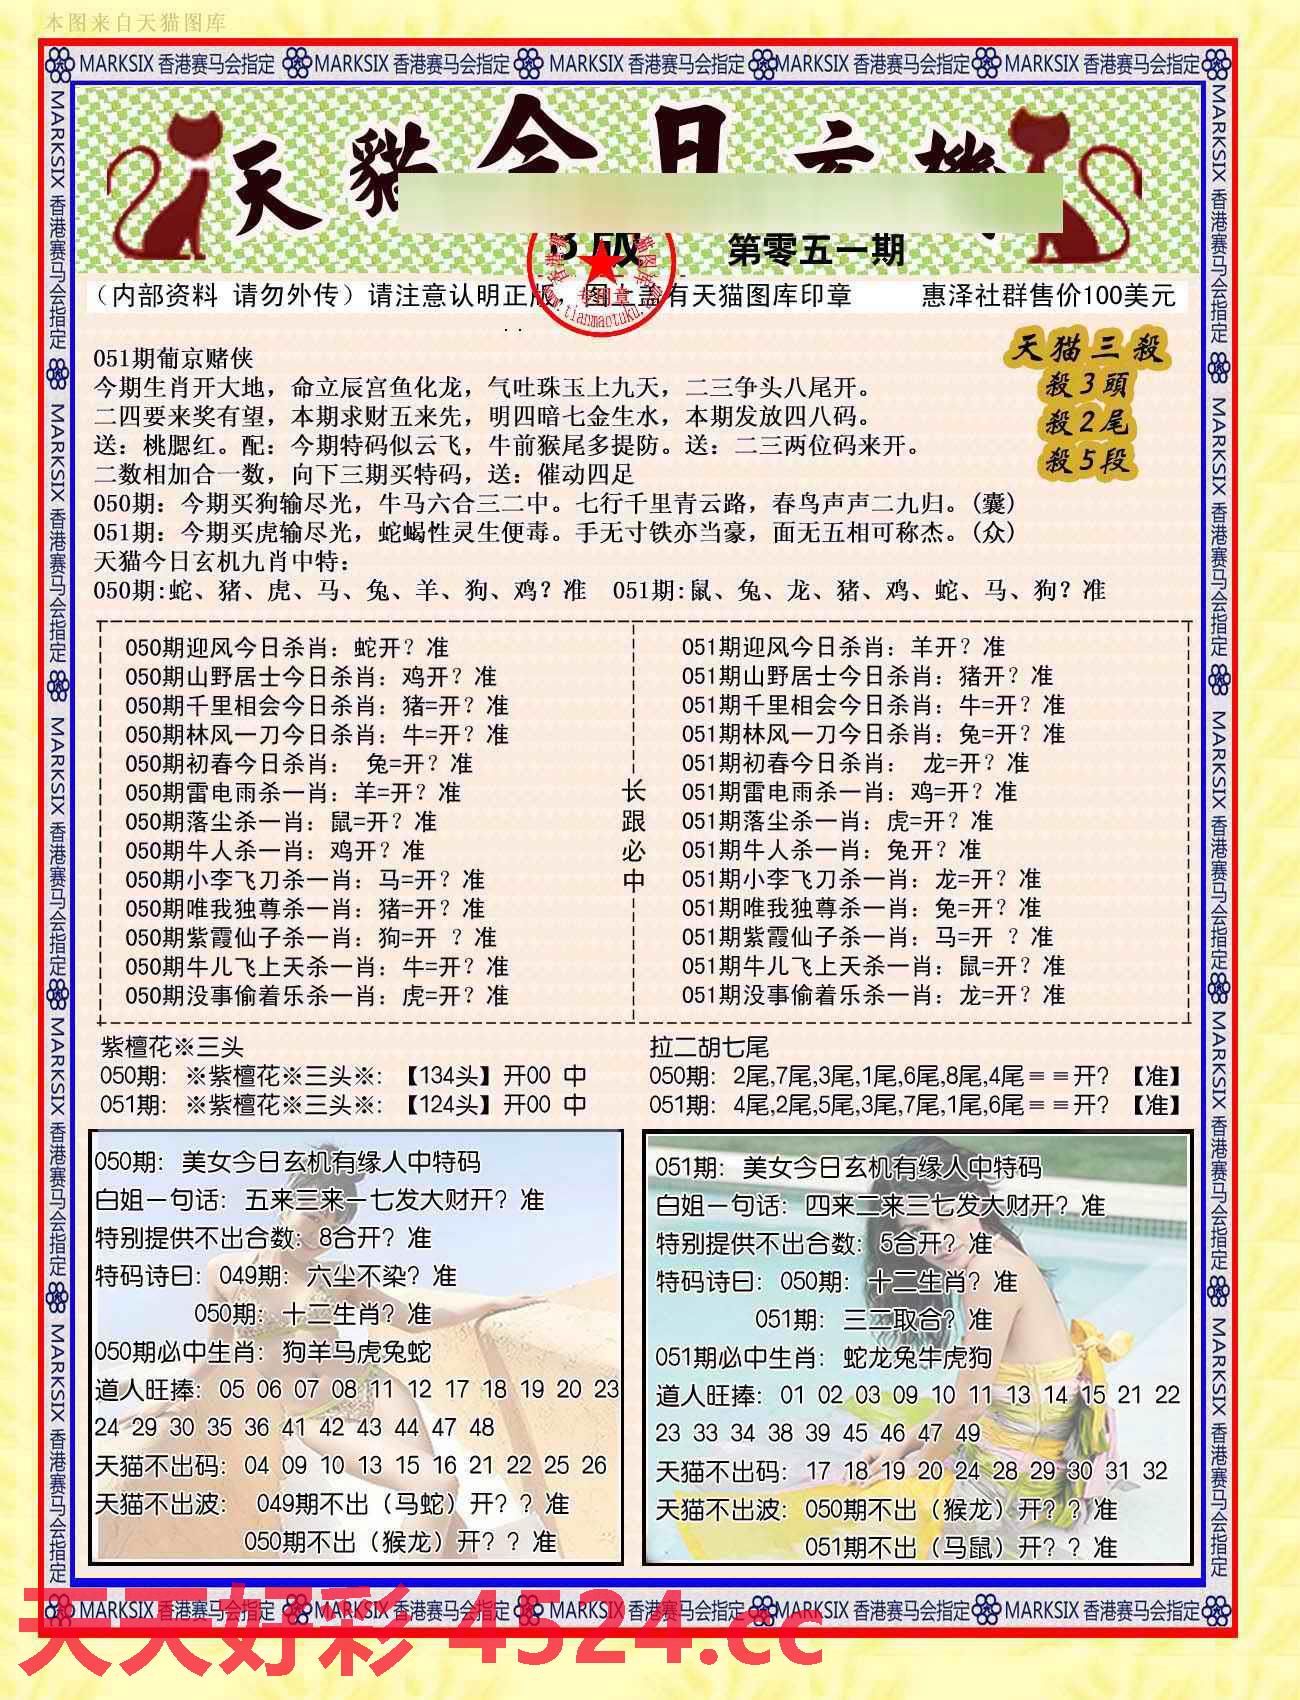 本图来自天猫图库
MARKSIX 香港赛马会指定 MARKSIX 香港赛马会指定 MARKSIX 香港赛马会指定 MARKSIX 香港赛马会指定 MARKSIX 香港赛马会指定
天貓今日玄機
B版
第零五一期
（内部资料 请勿外传）请注意认明正版，图上盖有天猫图库印章 惠泽社群售价100美元
专用章
www.tianmaotuku.com
天猫三殺
殺3頭
殺2尾
殺5段
051期葡京赌侠
今期生肖开大地，命立辰宫鱼化龙，气吐珠玉上九天，二三争头八尾开。
二四要来奖有望，本期求财五来先，明四暗七金生水，本期发放四八码。
送：桃腮红。配：今期特码似云飞，牛前猴尾多提防。送：二三两位码来开。
二数相加合一数，向下三期买特码，送：催动四足
050期：今期买狗输尽光，牛马六合三二中。七行千里青云路，春鸟声声二九归。(囊)
051期：今期买虎输尽光，蛇蝎性灵生便毒。手无寸铁亦当豪，面无五相可称杰。(众)
天猫今日玄机九肖中特：
050期:蛇、猪、虎、马、兔、羊、狗、鸡？准 051期:鼠、兔、龙、猪、鸡、蛇、马、狗？准
050期迎风今日杀肖：蛇开？准
050期山野居士今日杀肖：鸡开？准
050期千里相会今日杀肖：猪=开？准
050期林风一刀今日杀肖：牛=开？准
050期初春今日杀肖： 兔=开？准
050期雷电雨杀一肖：羊=开？准
050期落尘杀一肖：鼠=开？准
050期牛人杀一肖：鸡开？准
050期小李飞刀杀一肖：马=开？准
050期唯我独尊杀一肖：猪=开？准
050期紫霞仙子杀一肖：狗=开 ？准
050期牛儿飞上天杀一肖：牛=开？准
050期没事偷着乐杀一肖：虎=开？准
长跟必中
051期迎风今日杀肖：羊开？准
051期山野居士今日杀肖：猪开？准
051期千里相会今日杀肖：牛=开？准
051期林风一刀今日杀肖：兔=开？准
051期初春今日杀肖： 龙=开？准
051期雷电雨杀一肖：鸡=开？准
051期落尘杀一肖：虎=开？准
051期牛人杀一肖：兔开？准
051期小李飞刀杀一肖：龙=开？准
051期唯我独尊杀一肖：兔=开？准
051期紫霞仙子杀一肖：马=开 ？准
051期牛儿飞上天杀一肖：鼠=开？准
051期没事偷着乐杀一肖：龙=开？准
紫檀花※三头
050期：※紫檀花※三头※：【134头】开00 中
051期：※紫檀花※三头※：【124头】开00 中
拉二胡七尾
050期：2尾,7尾,3尾,1尾,6尾,8尾,4尾≡≡开？【准】
051期：4尾,2尾,5尾,3尾,7尾,1尾,6尾≡≡开？【准】
050期：美女今日玄机有缘人中特码
白姐一句话：五来三来一七发大财开？准
特别提供不出合数：8合开？准
特码诗曰：049期：六尘不染？准
050期：十二生肖？准
050期必中生肖：狗羊马虎兔蛇
道人旺捧：05 06 07 08 11 12 17 18 19 20 23
24 29 30 35 36 41 42 43 44 47 48
天猫不出码：04 09 10 13 15 16 21 22 25 26
天猫不出波： 049期不出（马蛇）开？？准
050期不出（猴龙）开？？准
051期：美女今日玄机有缘人中特码
白姐一句话：四来二来三七发大财开？准
特别提供不出合数：5合开？准
特码诗曰：050期：十二生肖？准
051期：三二取合？准
051期必中生肖：蛇龙兔牛虎狗
道人旺捧：01 02 03 09 10 11 13 14 15 21 22
23 33 34 38 39 45 46 47 49
天猫不出码：17 18 19 20 24 28 29 30 31 32
天猫不出波：050期不出（猴龙）开？？准
051期不出（马鼠）开？？准
MARKSIX 香港赛马会指定 MARKSIX 香港赛马会指定 MARKSIX 香港赛马会指定 MARKSIX 香港赛马会指定 MARKSIX 香港赛马会指定
MARKSIX 香港赛马会指定 MARKSIX 香港赛马会指定 MARKSIX 香港赛马会指定 MARKSIX 香港赛马会指定 MARKSIX 香港赛马会指定
MARKSIX 香港赛马会指定 MARKSIX 香港赛马会指定 MARKSIX 香港赛马会指定 MARKSIX 香港赛马会指定 MARKSIX 香港赛马会指定
天天好彩 4524.cc